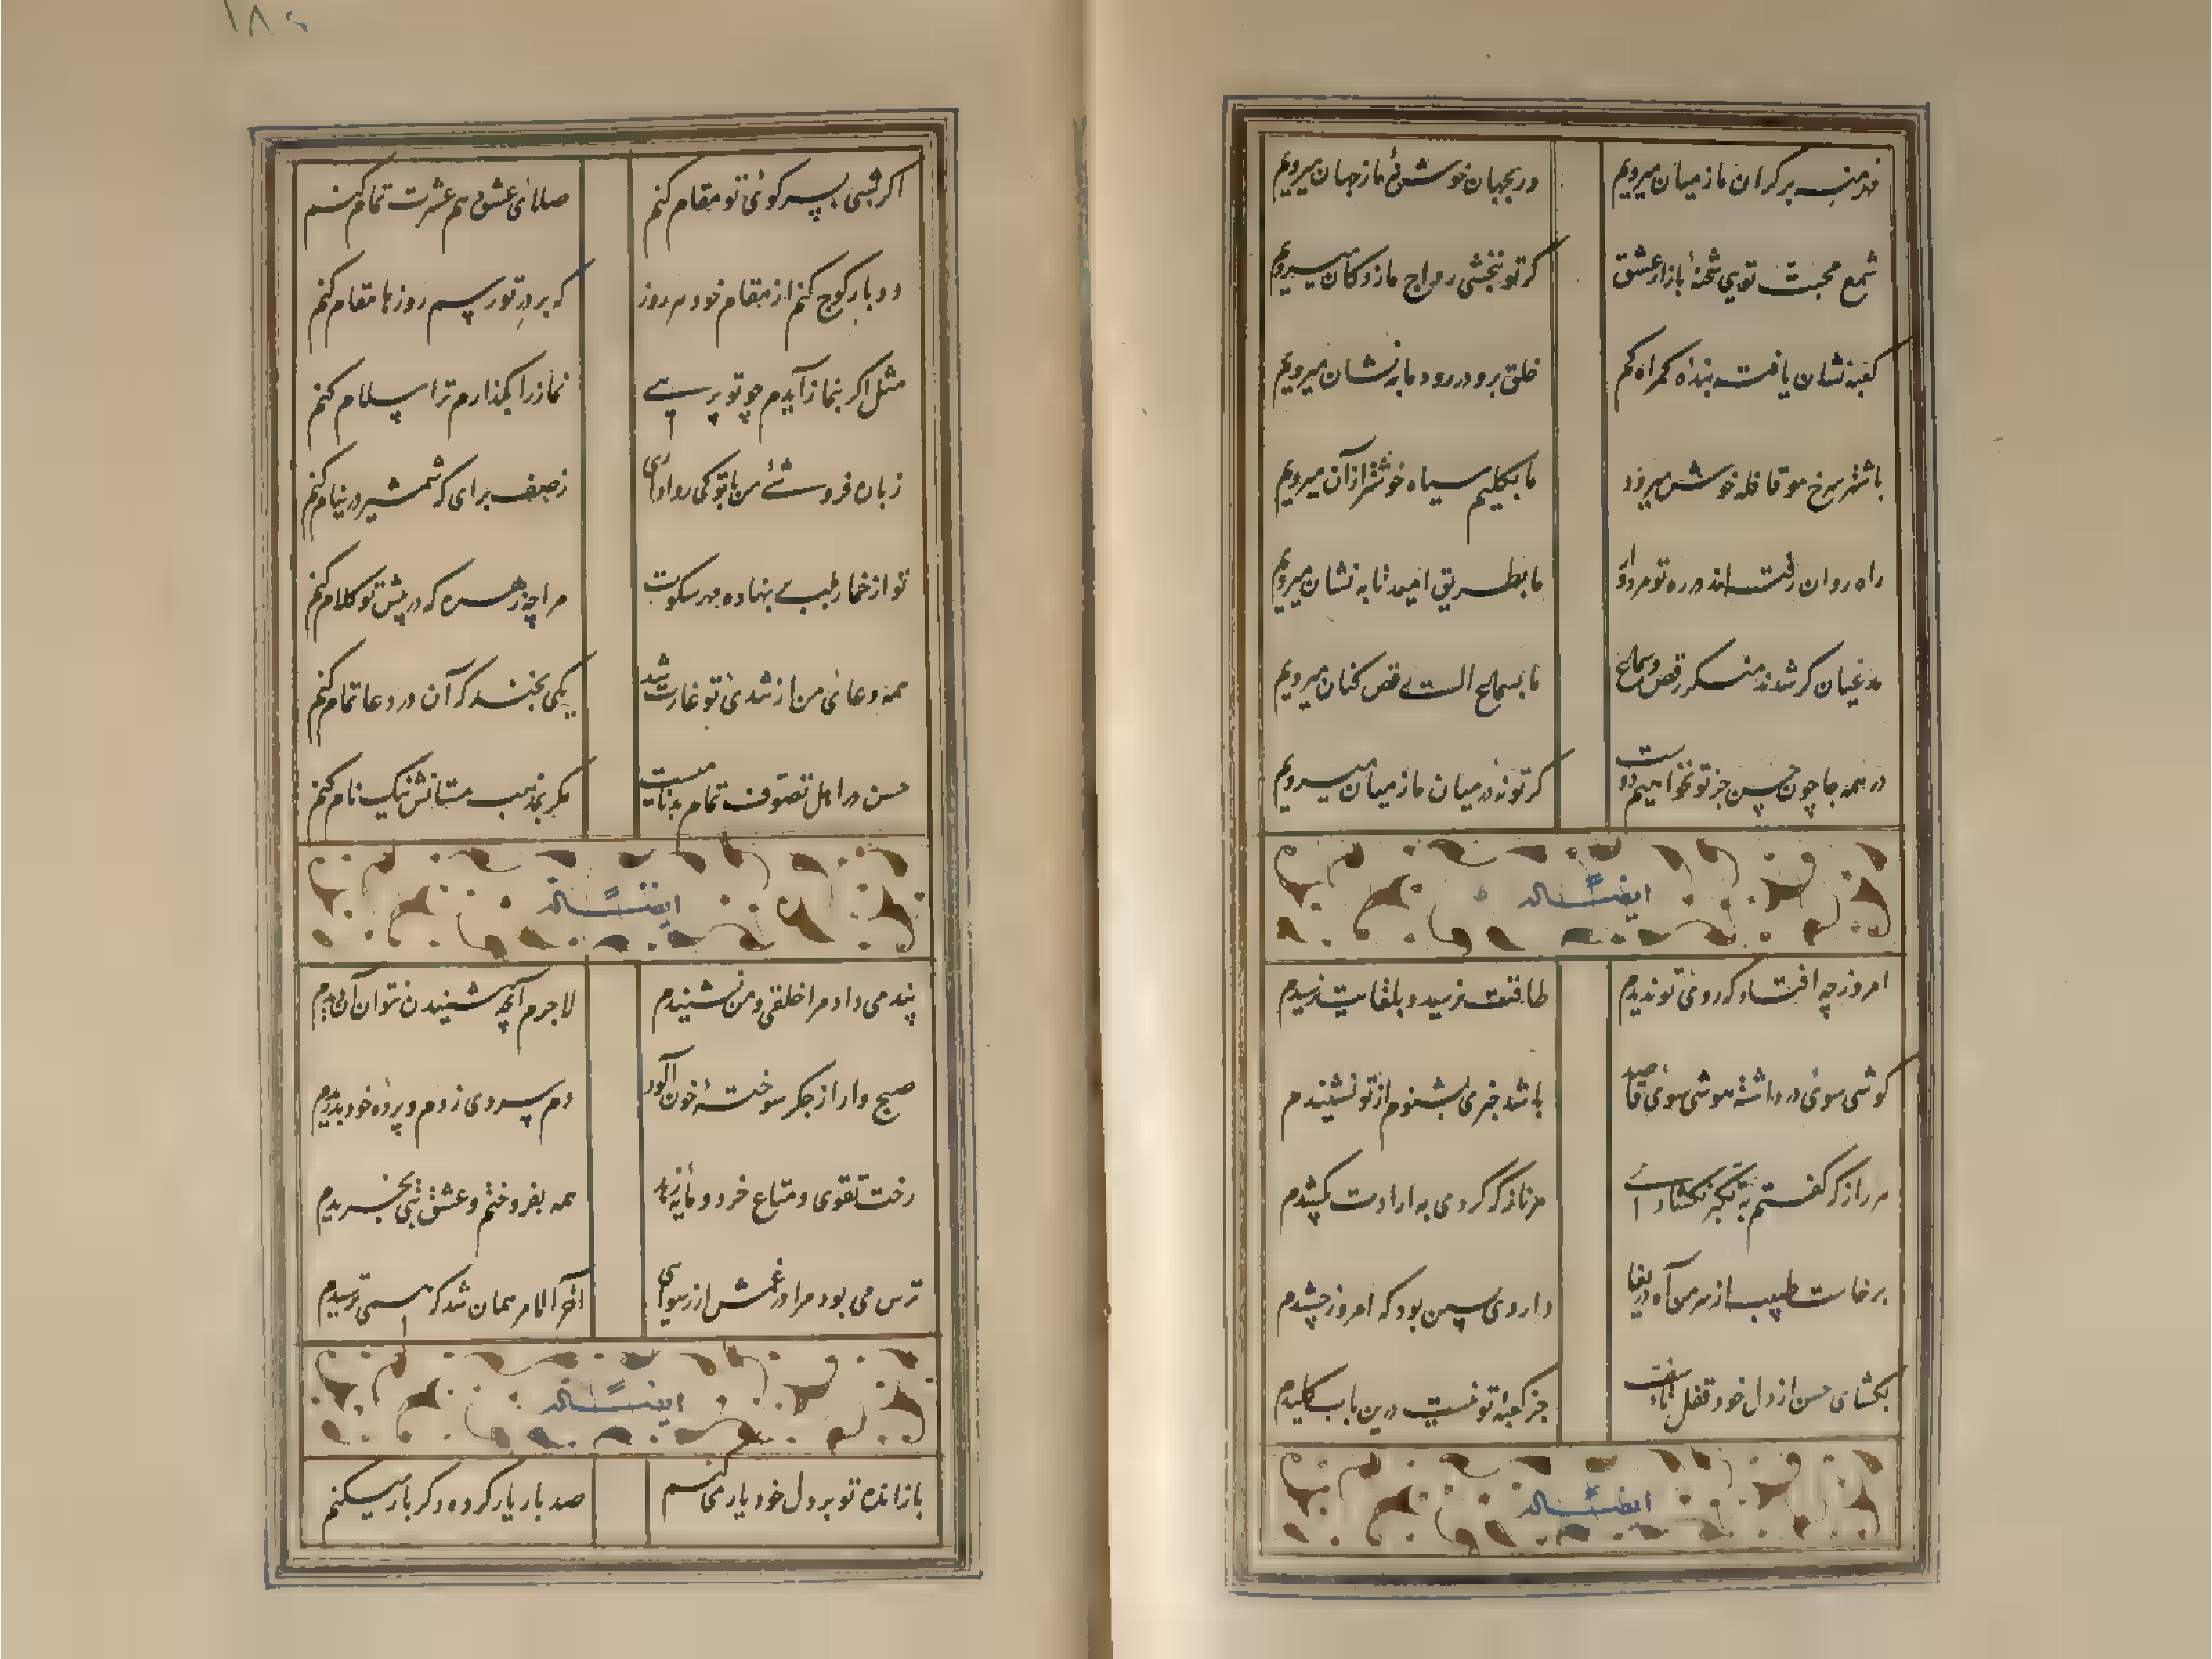 بر کران ما ز میان میرویم
در جهان خوش نۀ ما ز جهان میرویم
شمع محبت تویی شحنۀ بازار عشق
کر تو نبخشی رواج ما ز دکان میرویم
کعبه نشان یافت بندۀ کمراه کم
خلق برو در رود ما به نشان میرویم
با شتر سرخ مو قافله خوش میرود
ما بکلیم سیاه خوشتر از آن میرویم
راه روان رفته اند در ره تو مردوار
ما بطریق امید تا به نشان میرویم
مدعیان کر شدند منکر رقص و سماع
ما بسماع الست رقص کنان میرویم
در همه جا چون حسن جز تو نخواهیم دوست
کر تو نۀ در میان ما ز میان میرویم
ایضاً له
امروز چه افتاد که روی تو ندیدم
طاقت برسید و بلقایت نرسیدم
کوشی سوی در داشته هوشی سوی قاصد
باشد خبری بشنوم از تو نشنیدم
هر راز که کفتم بتکبر نکشادی
هر ناز که کردی به ارادت بکشیدم
برخاست طبیب از سر من آه دریغا
داروی پسین بود که امروز چشیدم
بکشای حسن از دل خود قفل تأسف
جز کعبۀ تو نیست درین باب کلیدم
ایضاً له
۱۸۲
اکر شبی بسر کوی تو مقام کنم
صلای عشق دهم عشرت تمام کنم
دو بار کوچ کنم از مقام خود هر روز
که بر در تو رسم روزها مقام کنم
مثل اکر بنماز آیدم چو تو پرسی
نماز را بکذارم ترا سلام کنم
زبان فروشی من با تو کی روا داری
ضعیف برای که شمشیر در نیام کنم
تو از خمار طبیبی نهاده مهر سکوت
مرا چه زهره که در پیش تو کلام کنم
همه دعای من از شدی تو غارت شد
یکی بخند که آن در دعا تمام کنم
حسن در اهل تصوف تمام بدنامیست
مکر بمذهب مستانش نیک نام کنم
ایضاً له
پند می داد مرا خلقی و من نشنیدم
لاجرم آنچه شنیدن نتوان آن دیدم
صبح وار از جکر سوختۀ خون آلود
دم سردی زدم و پردۀ خود بدریدم
رخت تقوی و متاع خرد و مایۀ زهد
همه بفروختم و عشق بتی بخریدم
ترس می بود مرا در غمش از رسوایی
آخر الامر همان شد که همی ترسیدم
ایضاً له
باز انده تو بر دل خود یار می کنم
صد بار یار کرده دکر بار میکنم